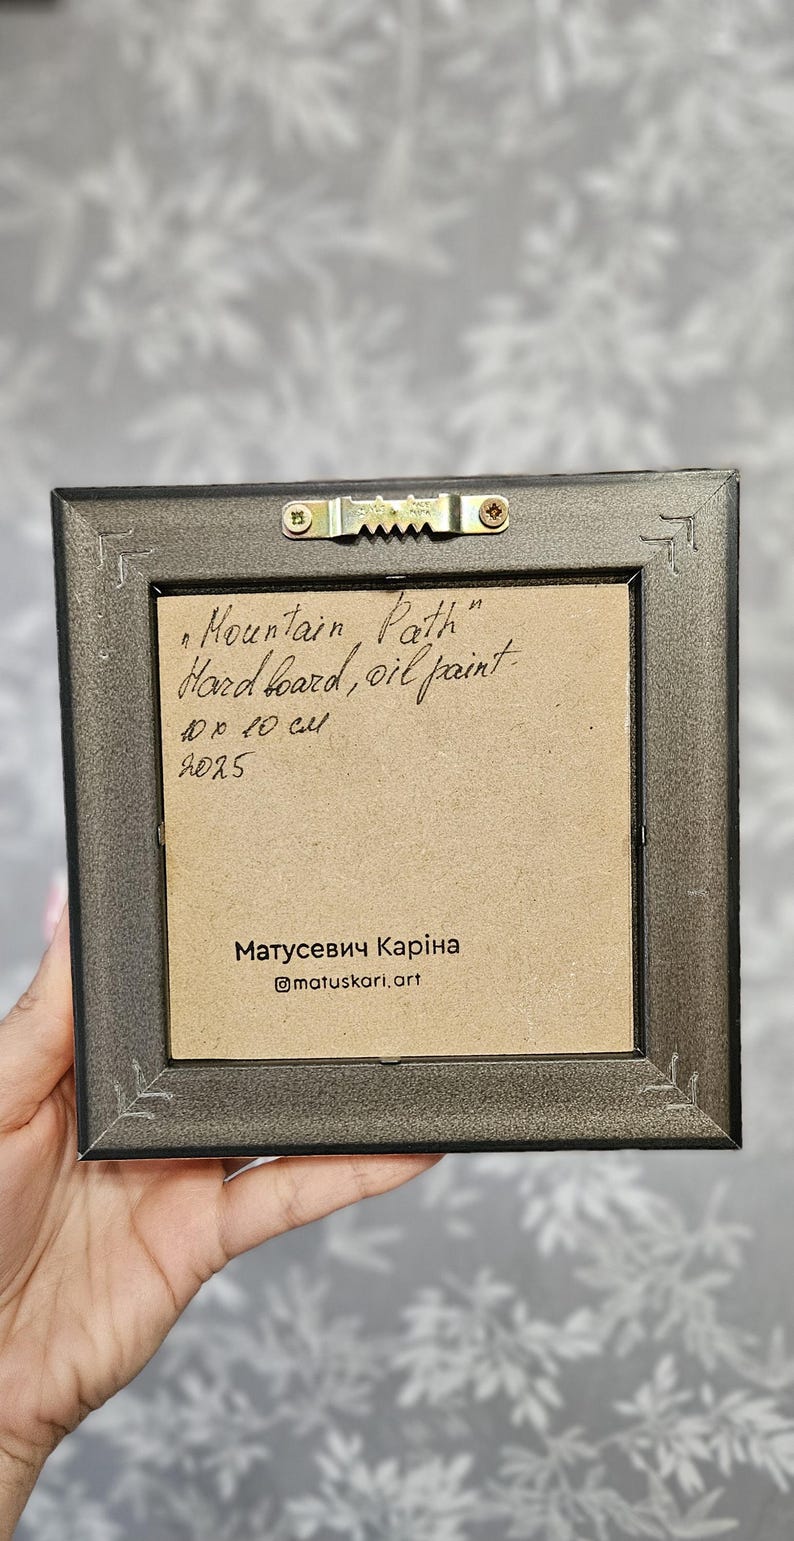 „Mountain Path"
Hardboard, oil paint
10 x 10 см
2025
Матусевич Каріна
matuskari.art